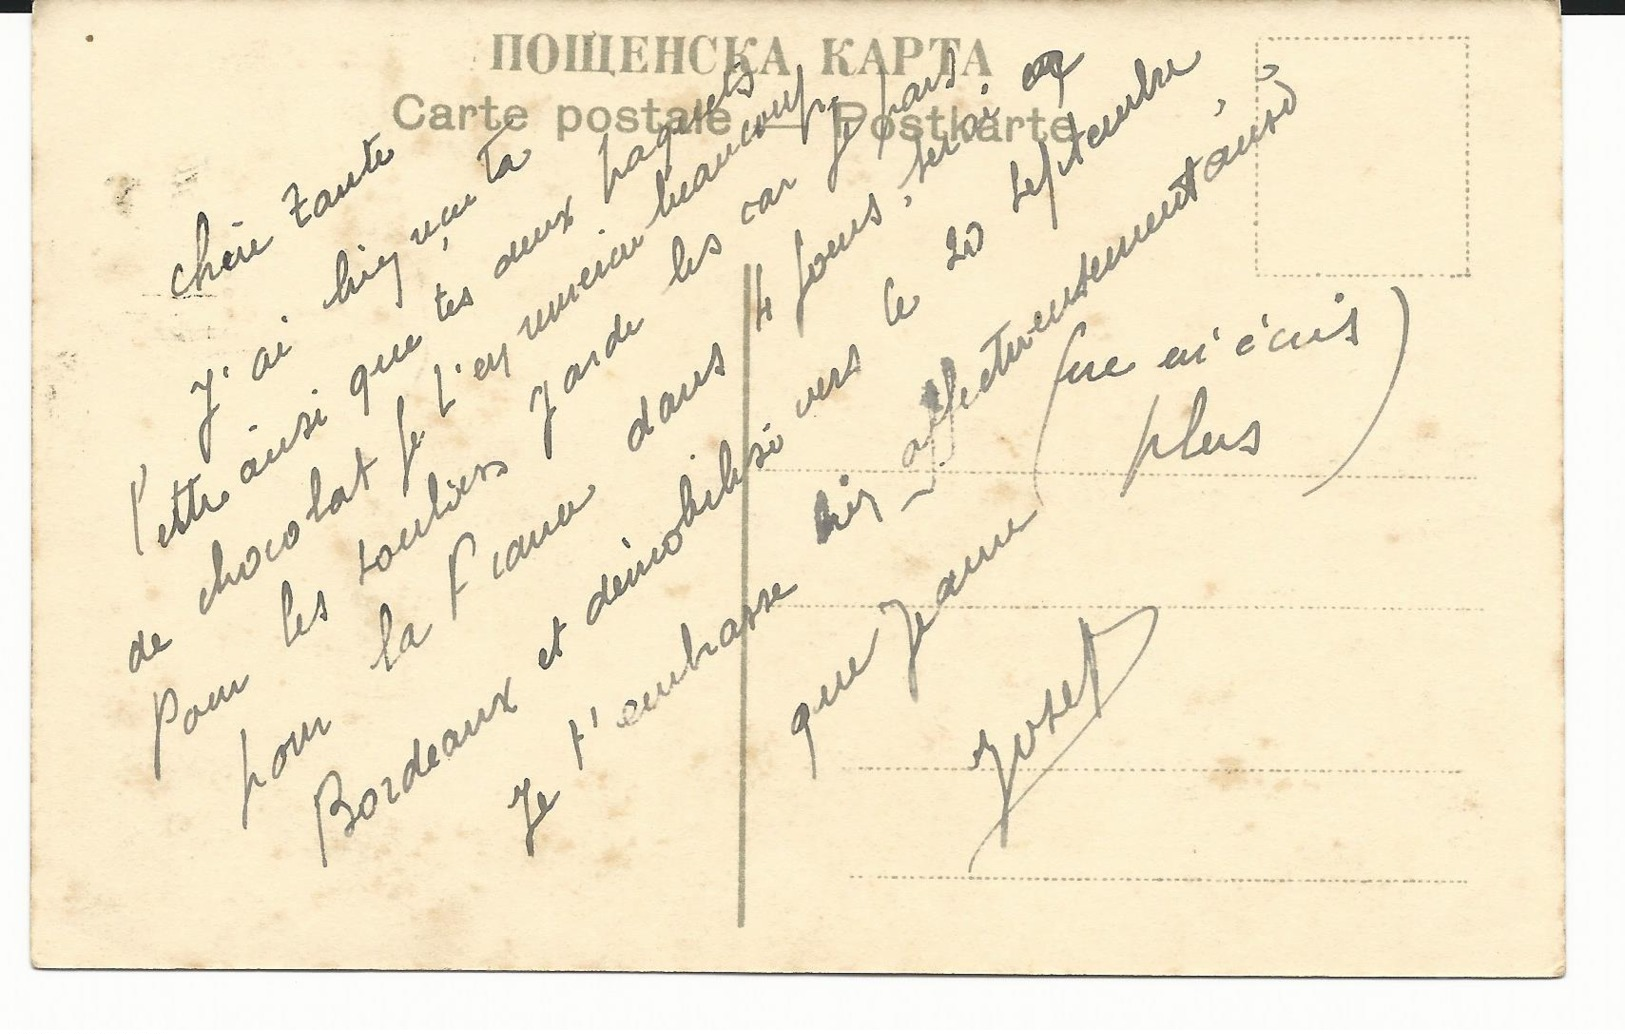 ПОЩЕНСКА КАРТА
Carte postale — Postkarte
Chère Tante
J'ai bien reçu ta
lettre ainsi que tes deux paquets
de chocolat je t'en remercie beaucoup,
Pour les souliers garde les car je pars
pour la France dans 4 jours, serai à
Bordeaux et démobilisé vers le 20 septembre
Je t'embrasse bien affectueusement ainsi
que Jeanne (ne m'écris
plus)
Josef